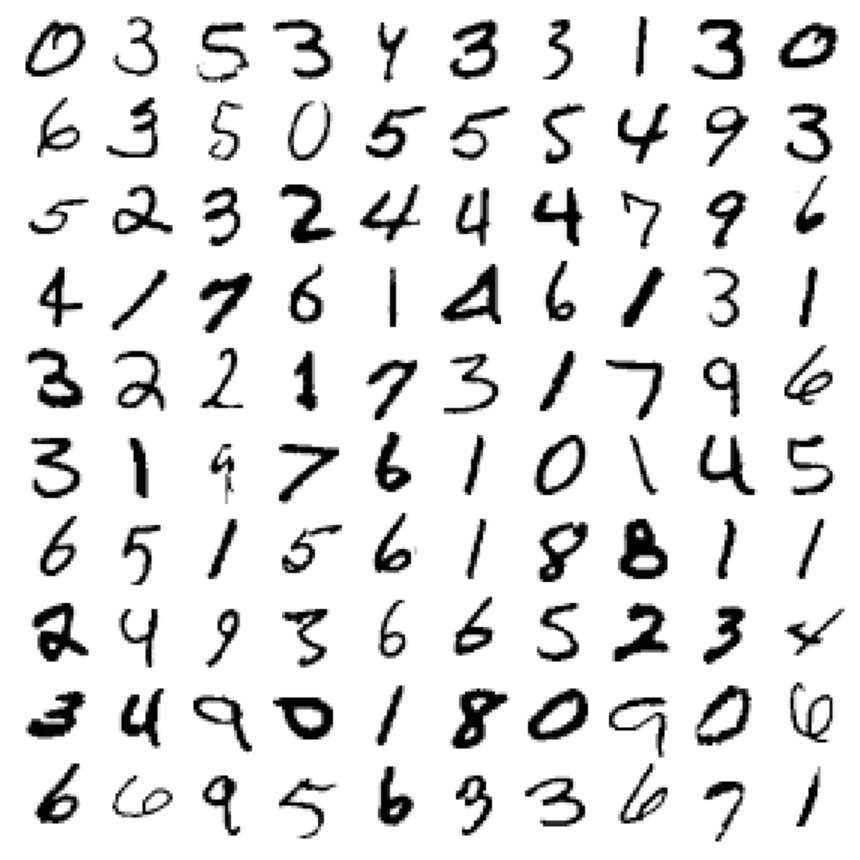 0 3 5 3 4 3 3 1 3 0
6 3 5 0 5 5 5 4 9 3
5 2 3 2 4 4 4 7 9 6
4 1 7 6 1 4 6 1 3 1
3 2 2 1 7 3 1 7 9 6
3 1 9 7 6 1 0 1 4 5
6 5 1 5 6 1 8 8 1 1
2 4 9 3 6 6 5 2 3 4
3 4 9 0 1 8 0 9 0 6
6 6 9 5 6 3 3 6 7 1